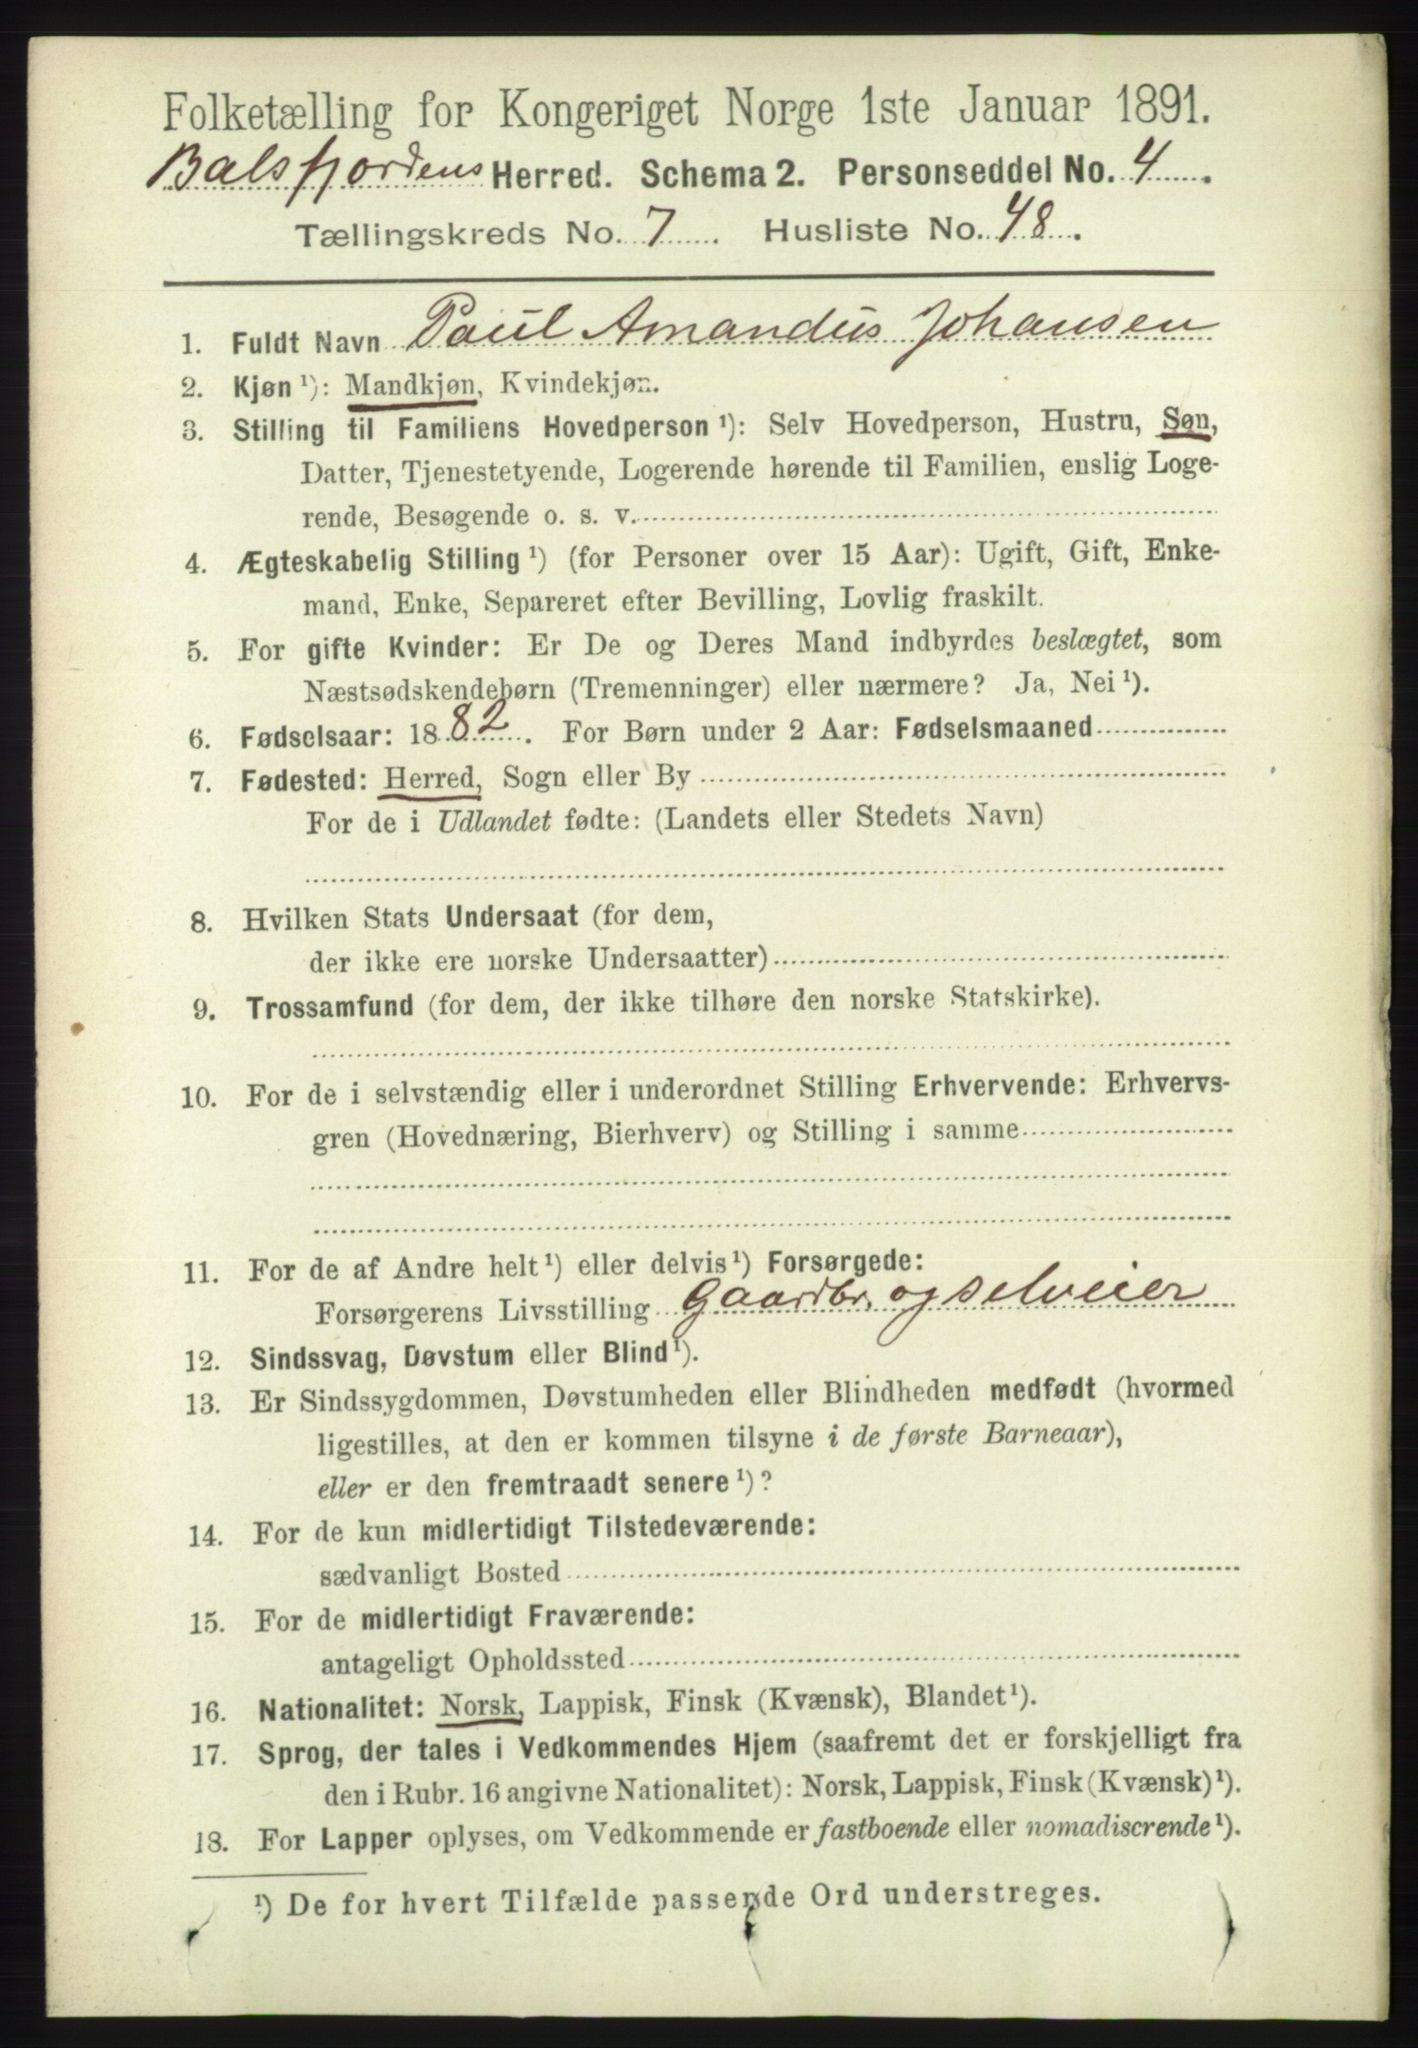 Folketælling for Kongeriget Norge 1ste Januar 1891.
Balsfjordens Herred. Schema 2. Personseddel No. 4.
Tællingskreds No. 7. Husliste No. 48.
1. Fuldt Navn Paul Amandus Johansen
2. Kjøn ¹): Mandkjøn, Kvindekjøn.
3. Stilling til Familiens Hovedperson ¹): Selv Hovedperson, Hustru, Søn,
Datter, Tjenestetyende, Logerende hørende til Familien, enslig Loge-
rende, Besøgende o. s. v.
4. Ægteskabelig Stilling ¹) (for Personer over 15 Aar): Ugift, Gift, Enke-
mand, Enke, Separeret efter Bevilling, Lovlig fraskilt.
5. For gifte Kvinder: Er De og Deres Mand indbyrdes beslægtet, som
Næstsødskendebørn (Tremenninger) eller nærmere? Ja, Nei ¹).
6. Fødselsaar: 1882. For Børn under 2 Aar: Fødselsmaaned
7. Fødested: Herred, Sogn eller By
For de i Udlandet fødte: (Landets eller Stedets Navn)
8. Hvilken Stats Undersaat (for dem,
der ikke ere norske Undersaatter)
9. Trossamfund (for dem, der ikke tilhøre den norske Statskirke).
10. For de i selvstændig eller i underordnet Stilling Erhvervende: Erhvervs-
gren (Hovednæring, Bierhverv) og Stilling i samme
11. For de af Andre helt ¹) eller delvis ¹) Forsørgede:
Forsørgerens Livsstilling Gaardbr. og selveier
12. Sindssvag, Døvstum eller Blind ¹).
13. Er Sindssygdommen, Døvstumheden eller Blindheden medfødt (hvormed
ligestilles, at den er kommen tilsyne i de første Barneaar),
eller er den fremtraadt senere ¹)?
14. For de kun midlertidigt Tilstedeværende:
sædvanligt Bosted
15. For de midlertidigt Fraværende:
antageligt Opholdssted
16. Nationalitet: Norsk, Lappisk, Finsk (Kvænsk), Blandet ¹).
17. Sprog, der tales i Vedkommendes Hjem (saafremt det er forskjelligt fra
den i Rubr. 16 angivne Nationalitet): Norsk, Lappisk, Finsk (Kvænsk) ¹).
18. For Lapper oplyses, om Vedkommende er fastboende eller nomadiserende ¹).
¹) De for hvert Tilfælde passende Ord understreges.